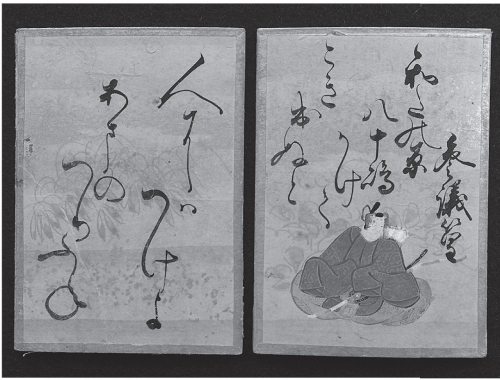 参議篁
和たの原
八十嶋
かけて
こき
出ぬと
人にハ
つけよ
あまの
つりふね